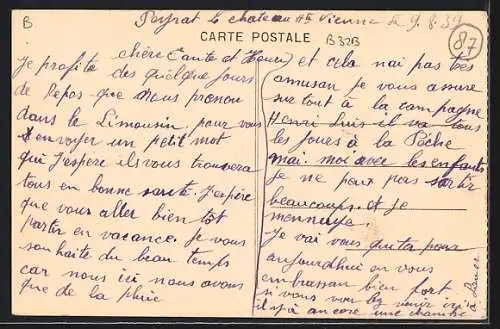 B
Peyrat le chateau Hte Vienne le 9.8.39
CARTE POSTALE
B32B
87
chère Tante et Henri
Je profite des quelque jours
de Repos que nous prenon
dans le Limousin pour vous
envoyer un petit mot
qui J'espère ils vous trouvera
tous en bonne santé. J'espère
que vous aller bien tôt
partir en vacance. Je vous
souhaite du beau temps
car nous ici nous avons
que de la pluie
et cela nai pas très
amusan je vous amure
sur tout à la campagne
Henri Luis il va tous
les Joues à la Pêche
mai moi avec les enfants
je ne peux pas sortir
beaucoup et je
mennuye.
Je vai vous quiter pour
aujourdhui en vous
embrassan bien fort
si vous voulez venir ici
il y a ancore une chambre
à Louer